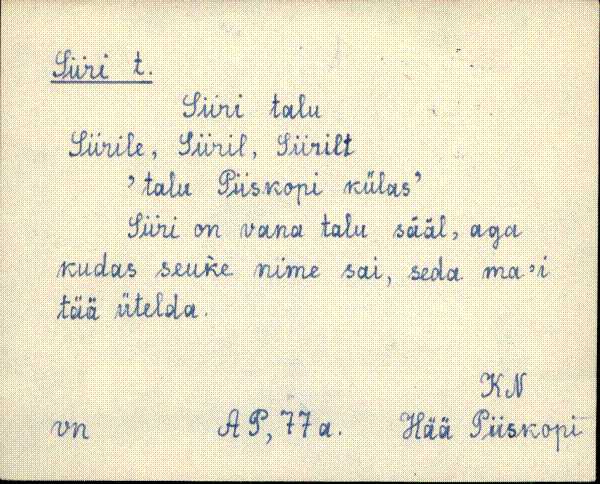 Siiri t.
Siiri talu
Siirile, Siiril, Siirilt
’talu Piiskopi külas’
Siiri on vana talu sääl, aga
kudas seuke nime sai, seda ma’i
tää ütelda.
KN
vn AP, 77a. Hää Piiskopi